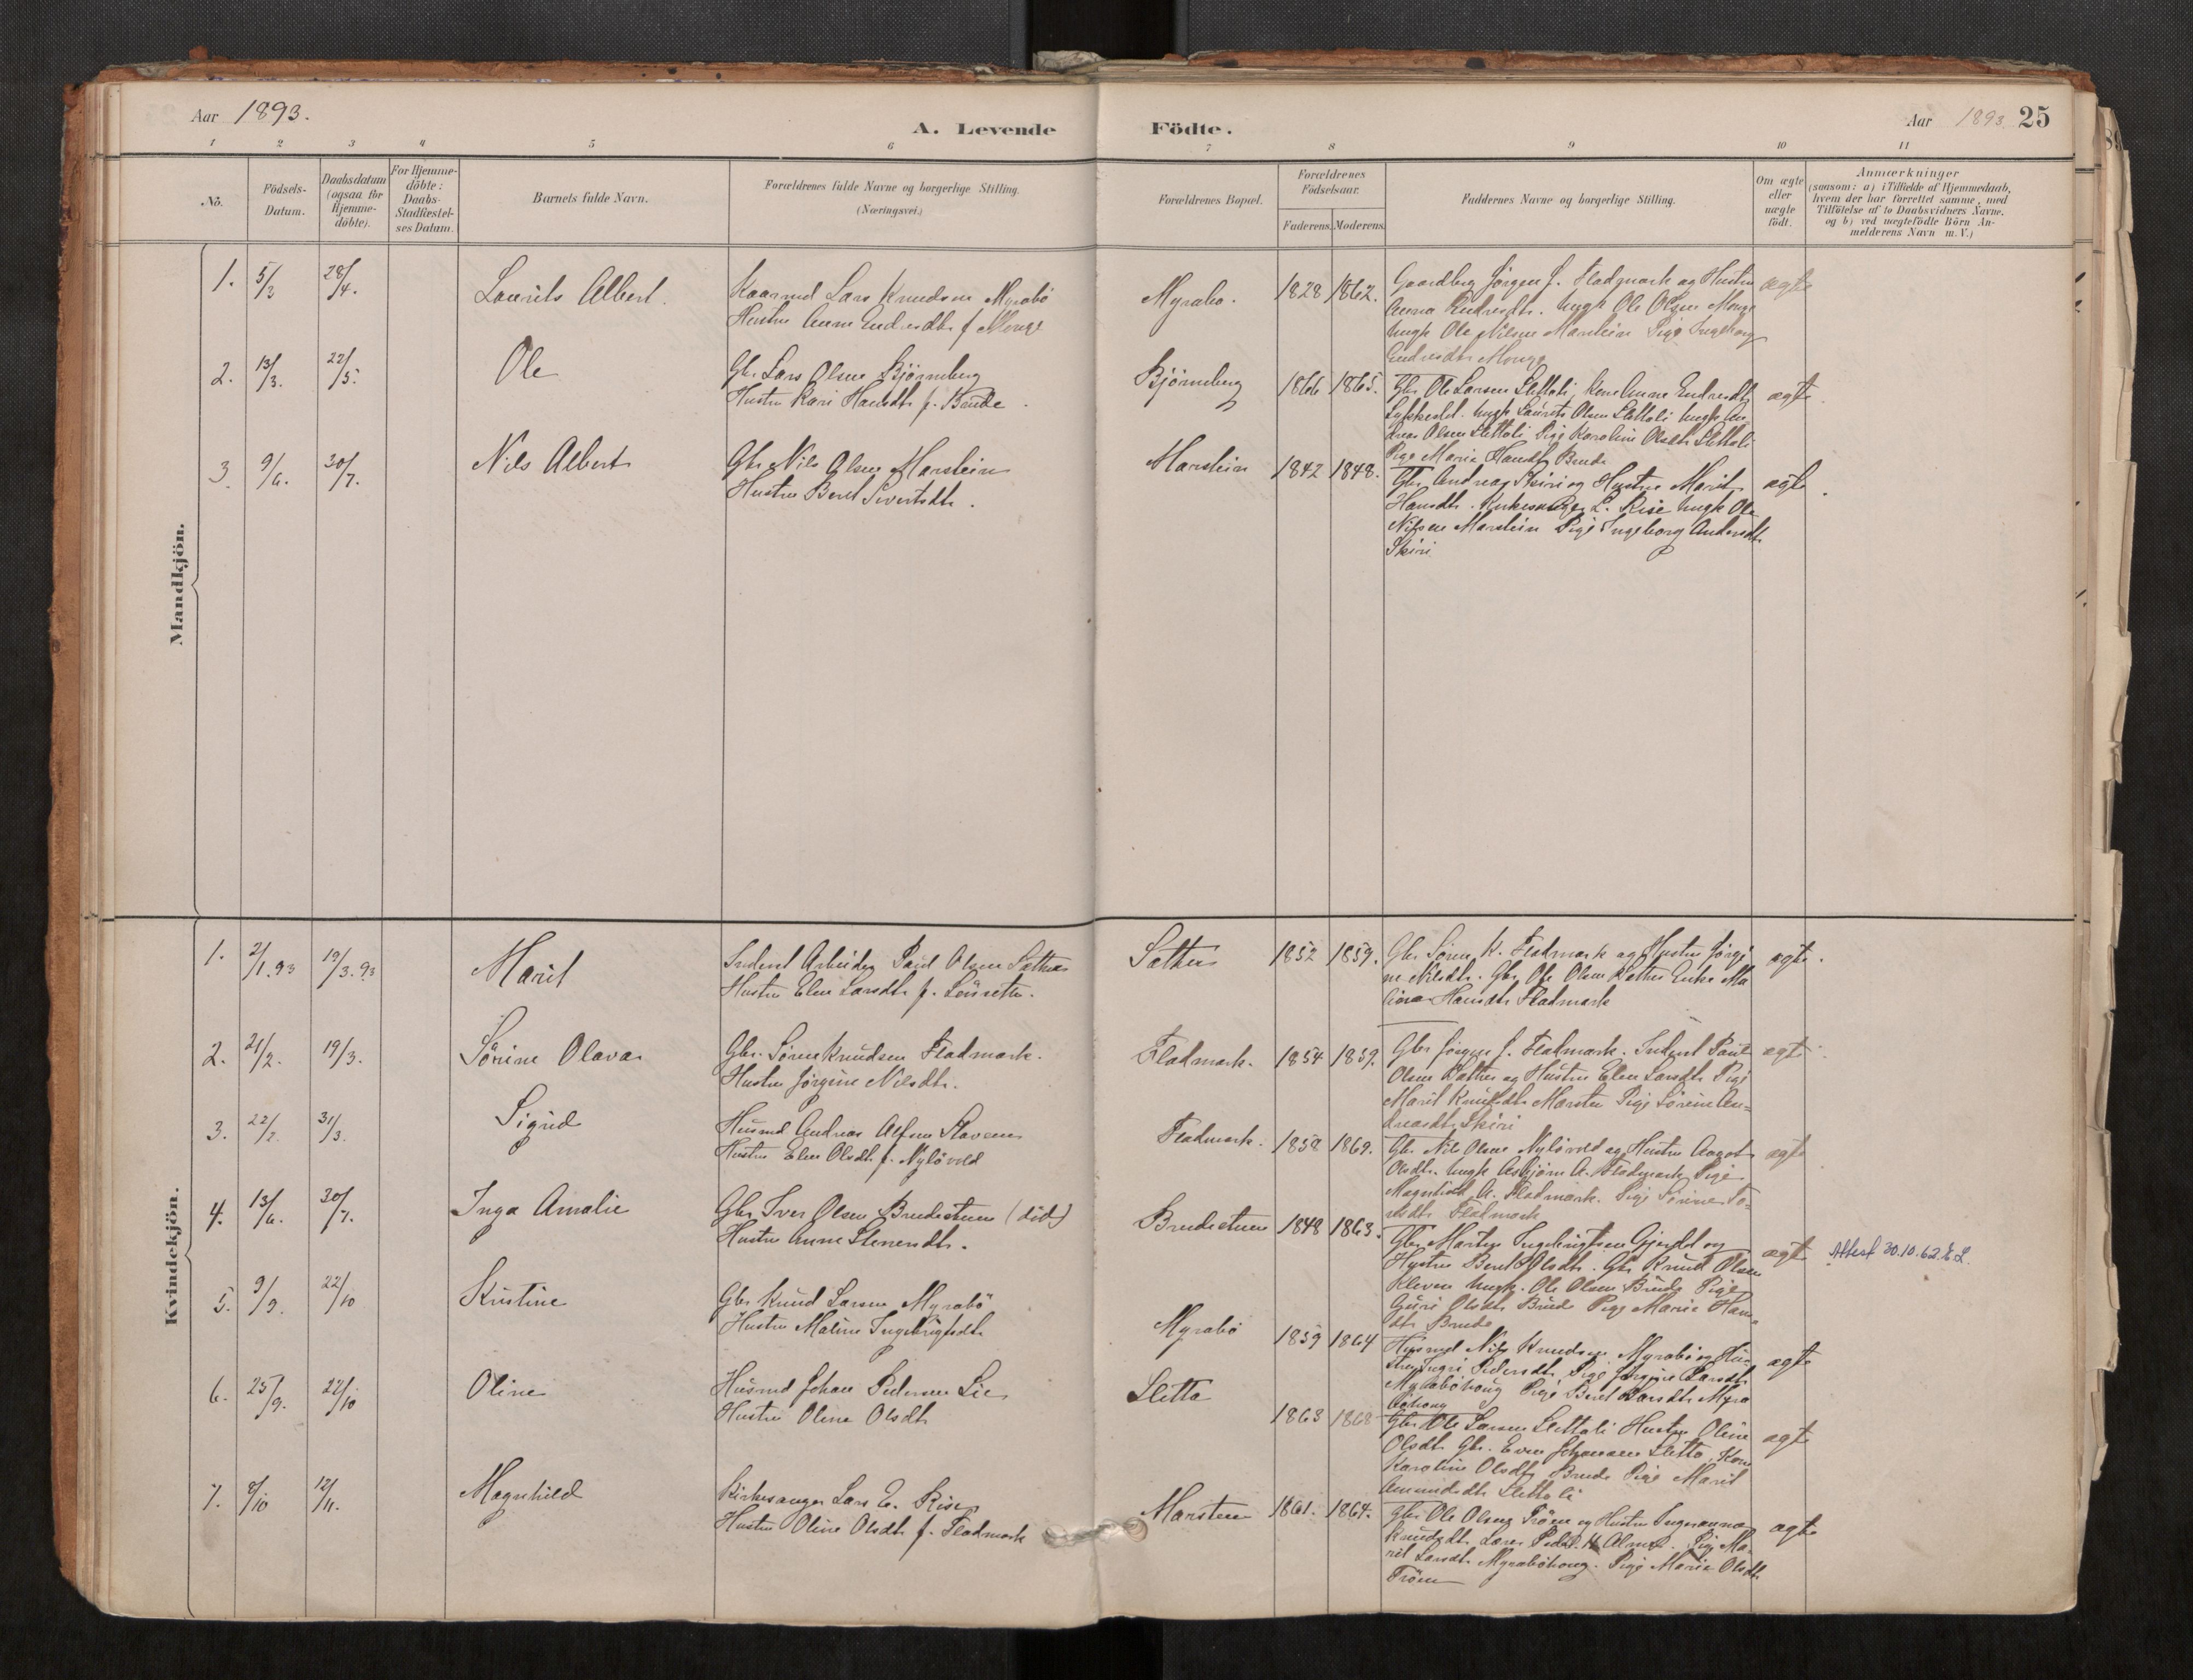 Aar 1893.
A. Levende Födte.
Aar 1893 25
1 2 3 4 5 6 7 8 9 10 11
No.
Födsels-Datum.
Daabsdatum (ogsaa för Hjemme-döbte).
For Hjemme-döbte: Daabs-Stadfæstel-ses Datum.
Barnets fulde Navn.
Forældrenes fulde Navne og borgerlige Stilling.
(Næringsvei.)
Forældrenes Bopæl.
Forældrenes Födselsaar.
Faderens. Moderens.
Faddernes Navne og borgerlige Stilling.
Om ægte eller uægte födt.
Anmærkninger
(saasom: a) i Tilfælde af Hjemmedaab,
hvem der har forrettet samme, med
Tilföielse af to Daabsvidners Navne,
og b) ved uægtefödte Börn An-
melderens Navn m. V.)
Mandkjön.
1. 5/3 28/4. Laurits Albert.
Kaarmd Lars Knudsen Myrabö
Hustru Anne Endresdtr f. Monge
Myrabø. 1828 1862.
Gaardbrg Jørgen J. Fladmark og Hustru
Anna Endresdtr. Ungk Ole Olsen Monge
Ungk Ole Nilsen Marstein Pige Ingeborg
Endresdtr Monge
ægte
2. 13/3. 22/5. Ole
Gbr. Lars Olsen Bjørneberg
Hustru Kari Hansdtr f. Brude.
Bjørneberg 1866 1865.
Gbr Ole Larsen Slettali, Kone Anne Endresdtr
Ungk Laurits Olsen Slettali Ungk An
dreas Olsen Slettali Pige Karoline Olsdtr Slettali
Pige Marie Hansdtr Brude
ægte.
3. 9/6. 30/7. Nils Albert
Gbr Nils Olsen Marstein
Hustru Beret Sivertsdtr.
Marstein 1842 1848.
Gbr Andreas Skiri og Hustru Marit
Hansdtr. Kirkesanger L. Rise Ungk Ole
Nilsen Marstein Pige Ingeborg Andersdtr
Skiri
ægte.
Kvindekjön.
1. 2/1.93 19/3.93 Marit
Inderst Arbeider Paul Olsen Sæther
Hustru Elen Larsdtr f.
Sæther 1852 1859.
Gbr Søren K. Fladmark og Hustru Jørgi
ne Nilsdtr. Gbr Ole Olsen Sæther Enke Ma
Hansdtr Fladmark
ægte.
2. 21/2. 19/3. Sørine Olava
Gbr. Søren Knudsen Fladmark.
Hustru Jørgine Nilsdtr.
Fladmark. 1854 1859.
Gbr Jørgen J. Fladmark. Inderst Paul
Olsen Sæther og Hustru Elen Larsdtr Pige
Marit Knudsdtr Marsten Pige Sørine An=
dreasdtr Skiri
ægte.
3. 22/2. 31/3. Sigrid
Husmd Andreas
Hustru Elen Olsdtr f. Nyløvold
Fladmark. 1858 1869.
Gbr. Nils Olsen Nyløvold og Hustru Aagot
Olsdtr. Ungk Asbjørn A. Fladmark Pige
Magnhild A. Fladmark. Pige Sørine To-
resdtr Fladmark
ægte
4. 13/6. 30/7. Inga Amalie
Gbr Iver Olsen Brudestuen (død)
Hustru Anne Stenersdtr.
Brudestuen 1848 1863.
Gbr Marten Ingebrigtsen Gjerdet og
Hustru Beret Olsdtr. Gbr Knud Olsen
Kleven Ungk. Ole Olsen Brude Pige
Guri Olsdtr Brude Pige Marie Hans=
dtr Brude
ægte Attest 30.10.62 E.L.
5. 9/9. 22/10 Kristine
Gbr Knud Larsen Myrabö
Hustru Malene Ingebrigtsdtr
Myrabö 1859 1864
Husmd Nils Knudsen Myrabö og Hu=
stru Ingri Pedersdtr, Pige Jørgine Larsdtr
Myrabøhaug Pige Beret Larsdtr Myra
bøhaug
ægte
6. 25/9. 22/10 Oline
Husmd Johan Pedersen Lie
Hustru Oline Olsdtr
Sletta 1863 1868
Gbr Ole Larsen Slettali Hustru Oline
Olsdtr Gbr. Even Johansen Sletta, Kone
Karoline Olsdtr Brude Pige Marit
Amundsdtr Slettali
ægte
7. 8/10 12/11. Magnhild
Kirkesanger Lars E. Rise
Hustru Oline Olsdtr f. Fladmark
Marsten 1861. 1864.
Gbr Ole Olsen Trøen og Hustru Ingeranna
Knudsdtr Lærer Peder Almaas. Pige Ma-
rit Larsdtr. Myrabøhaug. Pige Marie Olsdtr
Trøen
ægte